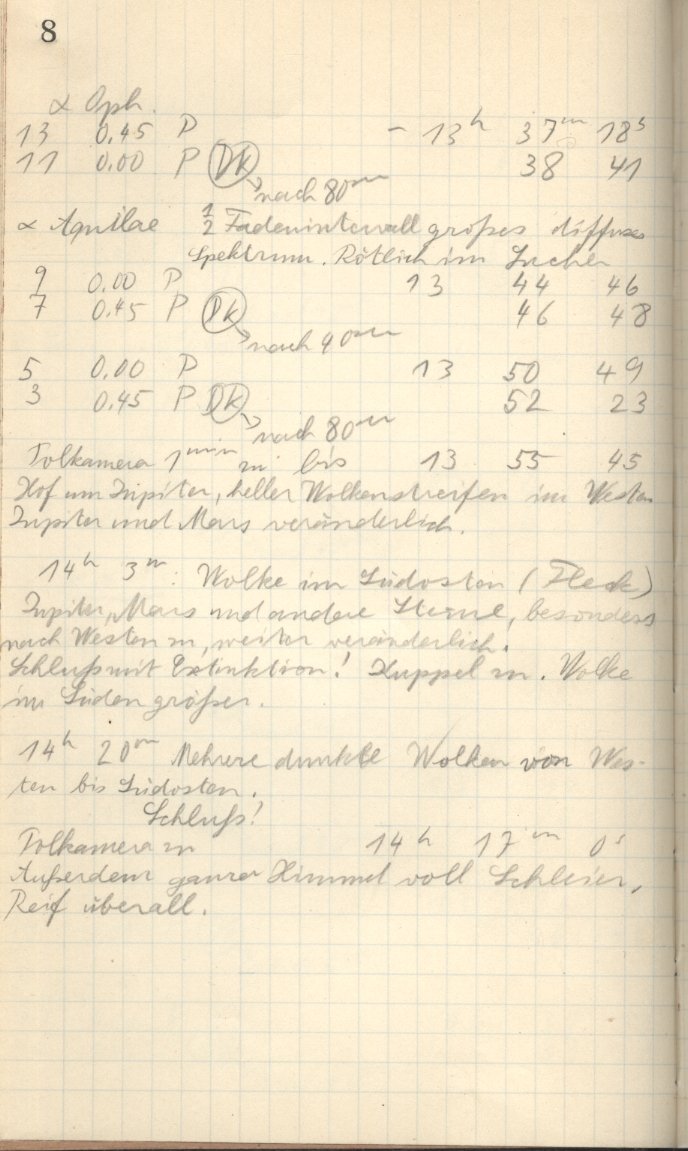 8
α Oph.
13 0.45 P – 13ʰ 37ᵐ 18ˢ
11 0.00 P DK 38 41
nach 80ᵐ
α Aquilae ½ Fadenintervall großes diffuses
Spektrum. Rötlich im Sucher
9 0.00 P 13 44 46
7 0.45 P DK 46 48
nach 40ᵐ
5 0.00 P 13 50 49
3 0.45 P DK 52 23
nach 80ᵐ
Polkamera 1ᵐⁱⁿ zu bis 13 55 45
Hof um Jupiter, heller Wolkenstreifen im Westen
Jupiter und Mars veränderlich.
14ʰ 3ᵐ: Wolke im Südosten (Fleck)
Jupiter, Mars und andere Sterne, besonders
nach Westen zu, weiter veränderlich.
Schluß mit Extinktion! Kuppel zu. Wolke
im Süden größer.
14ʰ 20ᵐ Mehrere dunkle Wolken von Wes-
ten bis Südosten.
Schluß!
Polkamera zu 14ʰ 17ᵐ 0ˢ
Außerdem ganzer Himmel voll Schleier,
Reif überall.